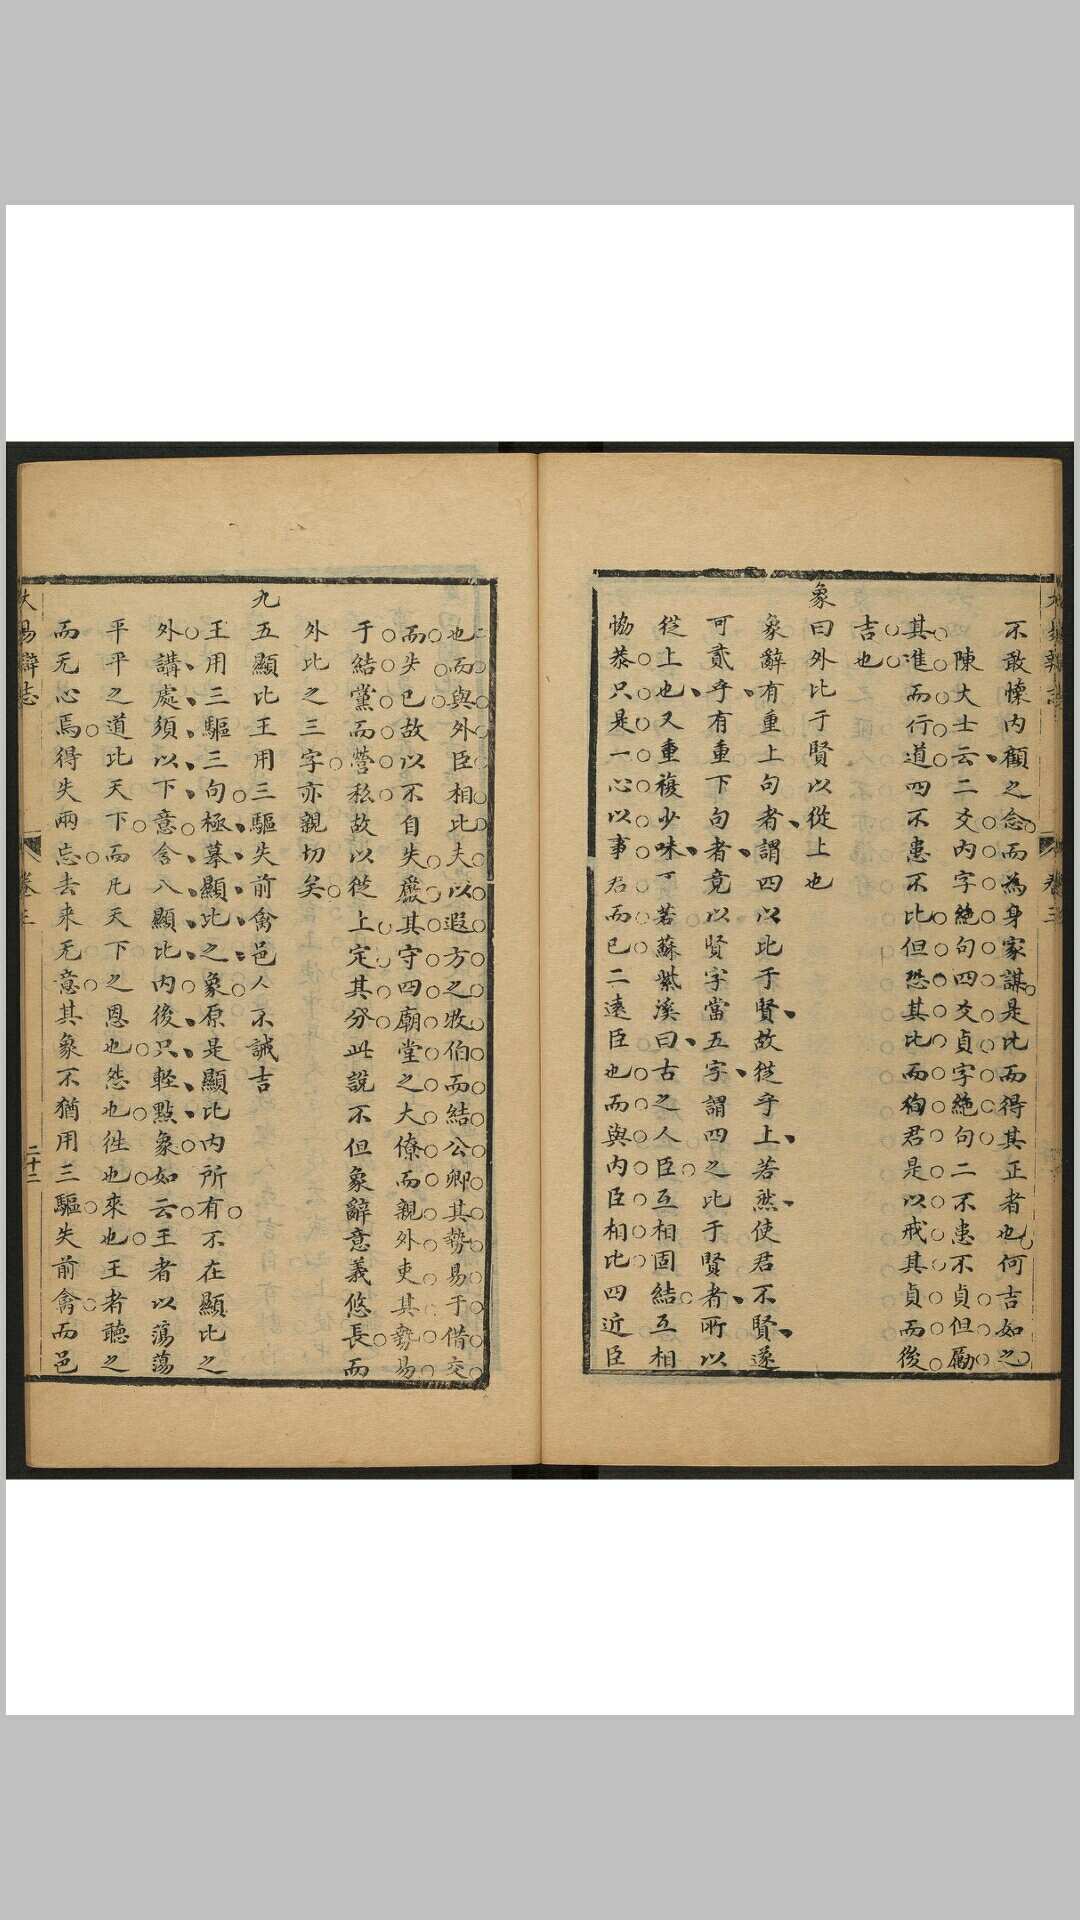 不敢懷內顧之念而為身家謀是比而得其正者也何吉如之
陳大士云二爻內字絕句四爻貞字絕句二不患不貞但勵
其進而行道四不患不比但恐其比而狥君是以戒其貞而後
吉也
象曰外比于賢以從上也
象辭有重上句者謂四以比于賢故從乎上若然使君不賢遂
可貳乎有重下句者竟以賢字當五字謂四之比于賢者所以
從上也又重複少味丁若蘇紫溪曰古之人臣互相固結互相
恊恭只是一心以事君而已二遠臣也而與內臣相比四近臣
也而與外臣相比夫以遐方之牧伯而結公卿其勢易于借交
而失已故以不自失嚴其守四廟堂之大僚而親外吏其勢易
于結黨而營私故以從上定其分此說不但象辭意義悠長而
外比之三字亦親切矣
九五顯比王用三驅失前禽邑人不誡吉
王用三驅三句極摹顯比之象原是顯比內所有不在顯比之
外講處須以下意含入顯比內後只輕點象如云王者以蕩蕩
平平之道比天下而凡天下之恩也怨也徃也來也王者聽之
而无心焉得失兩忘去来无意其象不猶用三驅失前禽而邑
大易辯志
卷三
二十三